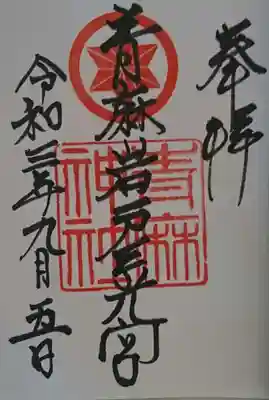 奉拝
青麻岩戸三光宮
青麻神社
令和三年九月五日